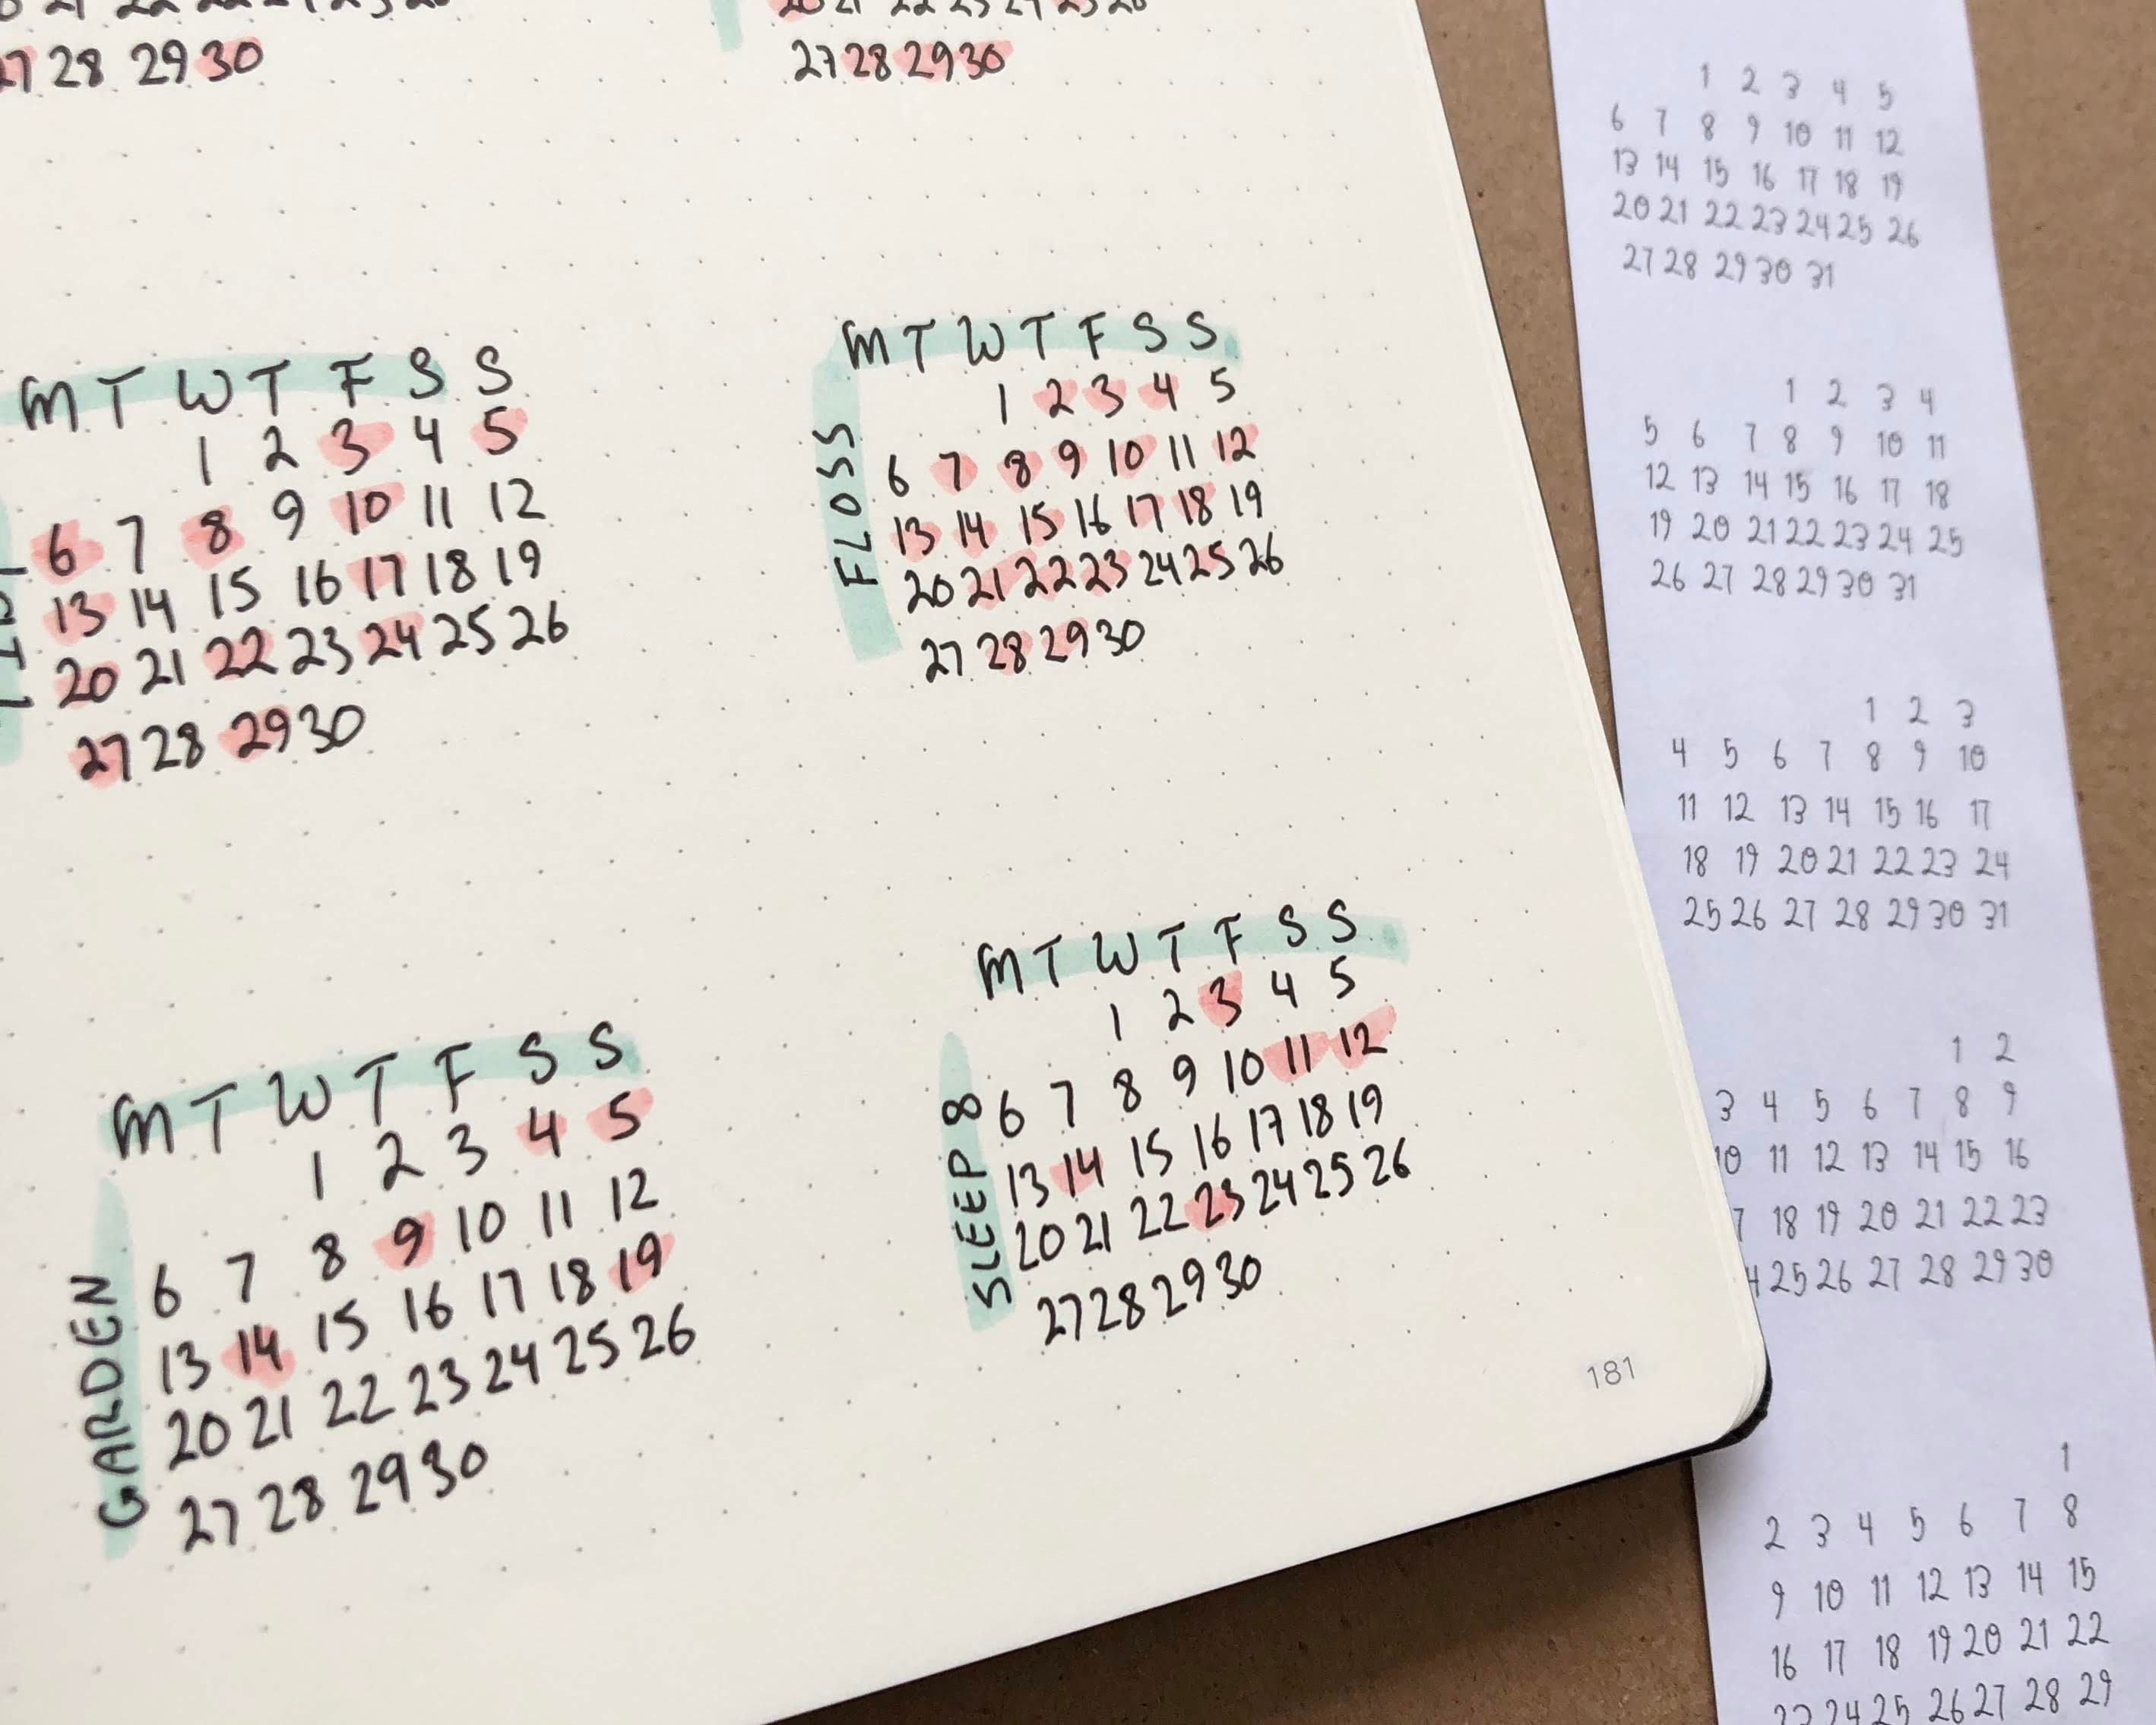 27 28 29 30
27 28 29 30
M T W T F S S
1 2 3 4 5
6 7 8 9 10 11 12
13 14 15 16 17 18 19
20 21 22 23 24 25 26
27 28 29 30
FLOSS
M T W T F S S
1 2 3 4 5
6 7 8 9 10 11 12
13 14 15 16 17 18 19
20 21 22 23 24 25 26
27 28 29 30
GARDEN
M T W T F S S
1 2 3 4 5
6 7 8 9 10 11 12
13 14 15 16 17 18 19
20 21 22 23 24 25 26
27 28 29 30
SLEEP 8
M T W T F S S
1 2 3 4 5
6 7 8 9 10 11 12
13 14 15 16 17 18 19
20 21 22 23 24 25 26
27 28 29 30
181
1 2 3 4 5
6 7 8 9 10 11 12
13 14 15 16 17 18 19
20 21 22 23 24 25 26
27 28 29 30 31
1 2 3 4
5 6 7 8 9 10 11
12 13 14 15 16 17 18
19 20 21 22 23 24 25
26 27 28 29 30 31
1 2 3
4 5 6 7 8 9 10
11 12 13 14 15 16 17
18 19 20 21 22 23 24
25 26 27 28 29 30 31
1 2
3 4 5 6 7 8 9
10 11 12 13 14 15 16
7 18 19 20 21 22 23
4 25 26 27 28 29 30
1
2 3 4 5 6 7 8
9 10 11 12 13 14 15
16 17 18 19 20 21 22
23 24 25 26 27 28 29